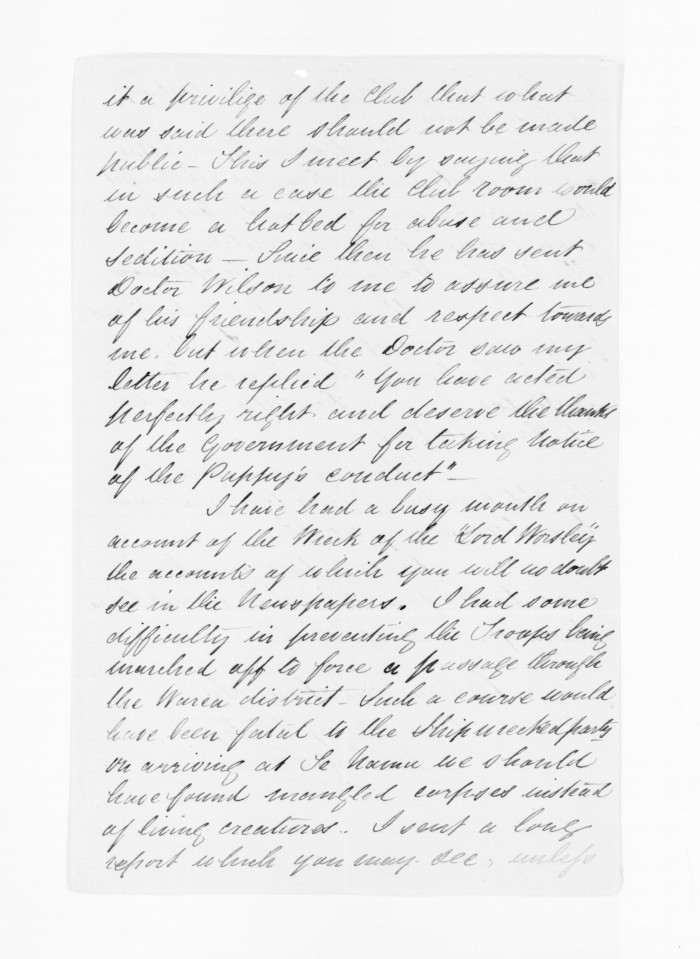 it a privilige of the Club that what
was said there should not be made
public - This I meet by saying that
in such a case the Club room would
become a hot bed for abuse and
sedition - Since then he has sent
Doctor Wilson to me to assure me
of his friendship and respect towards
me. but when the Doctor saw my
letter he replied "You have acted
perfectly right and deserve the thanks
of the Government for taking notice
of the Puppy's conduct" -
I have had a busy month on
account of the Wreck of the "Lord Worsley"
the accounts of which you will no doubt
see in the Newspapers. I had some
difficulty in preventing the Troops being
marched off to force a passage through
the Warea district - Such a course would
have been fatal to the Shipwrecked party
on arriving at Te Namu we should
have found mangled corpses instead
of living creatures. I sent a long
report which you may see, unless